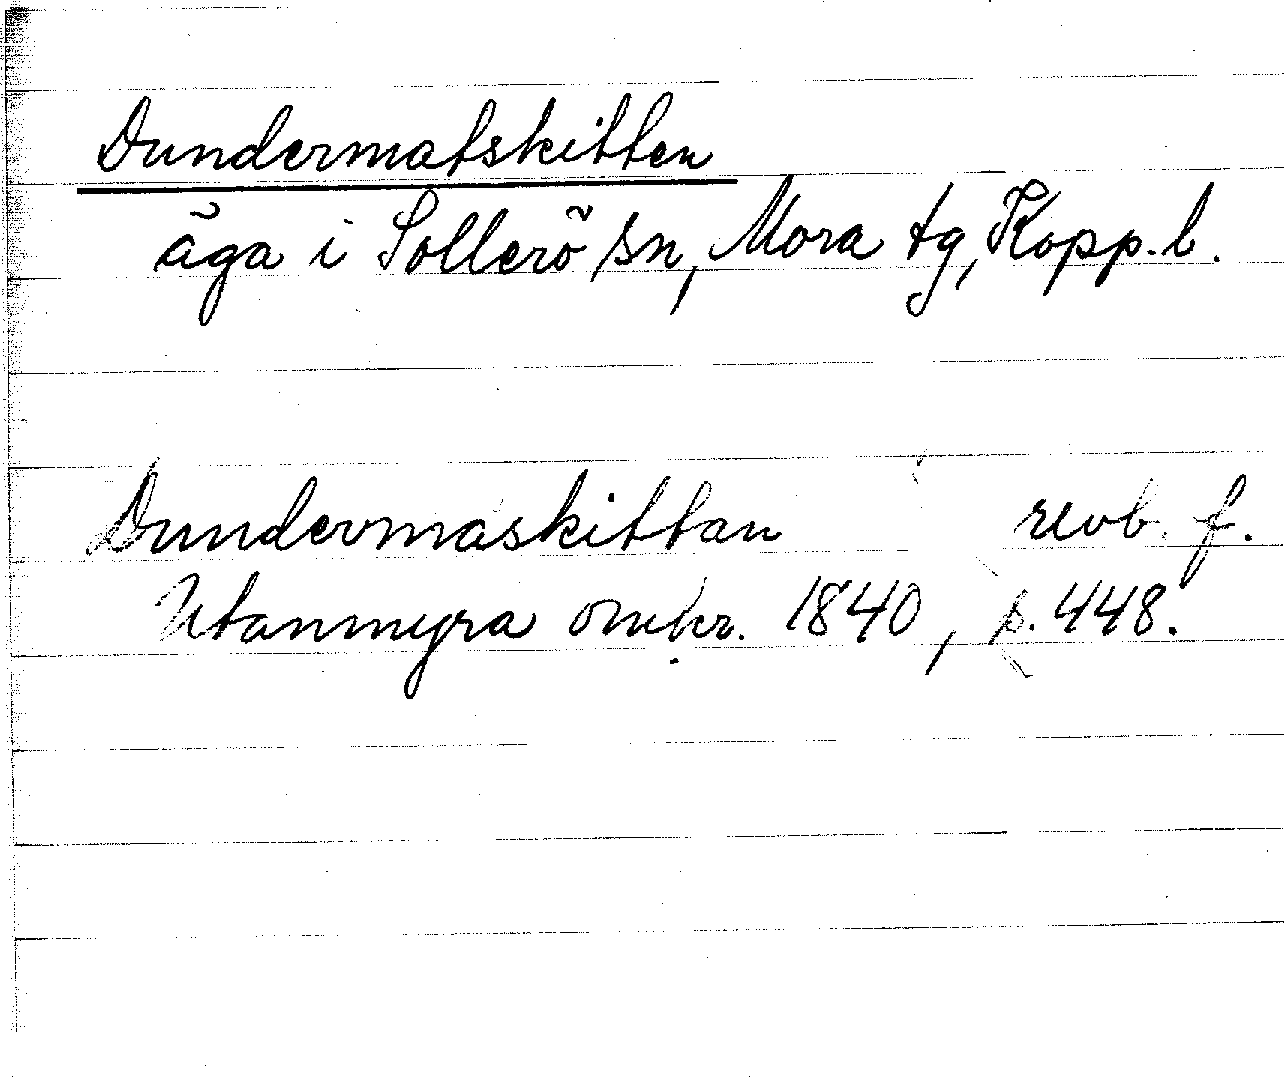 Dundermatskitten
äga i Sollerö sn, Mora tg, Kopp. l.
Dundermaskittan revb. f.
Utanmyra omkr. 1840, s. 448.